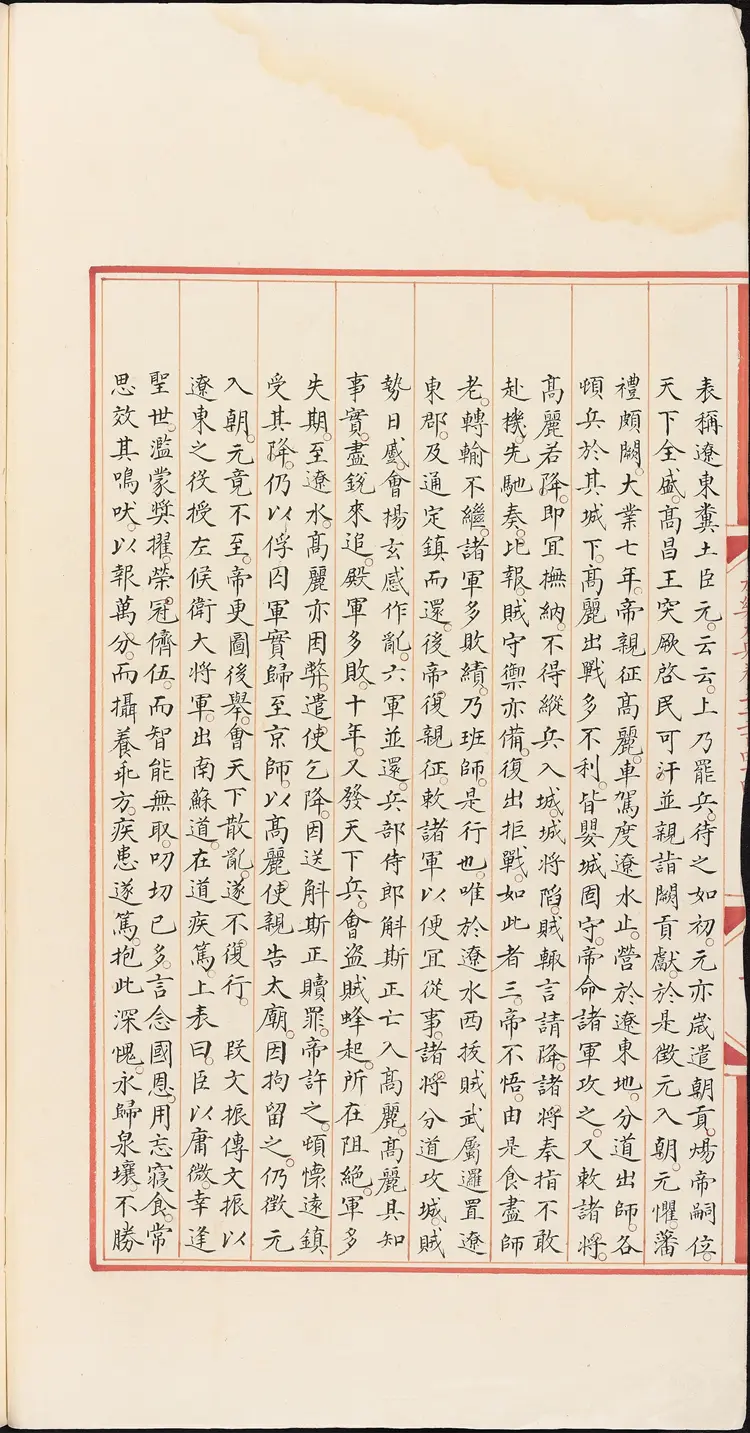 表稱遼東糞土臣元。云云。上乃罷兵。待之如初。元亦歲遣朝貢。煬帝嗣位。
天下全盛。高昌王突厥啓民可汗並親詣闕貢獻。於是徵元入朝。元懼。藩
禮頗闕。大業七年。帝親征高麗。車駕度遼水止。營於遼東地。分道出師。各
頓兵於其城下。高麗出戰多不利。皆嬰城固守。帝命諸軍攻之。又敕諸將。
高麗若降。即宜撫納。不得縱兵入城。城將陷。賊輒言請降。諸將奉指不敢
赴機。先馳奏。比報。賊守禦亦備。復出拒戰。如此者三。帝不悟。由是食盡師
老。轉輸不繼。諸軍多敗績。乃班師。是行也。唯於遼水西拔賊武厲邏置遼
東郡。及通定鎮而還。後帝復親征。敕諸軍以便宜從事。諸將分道攻城。賊
勢日蹙。會楊玄感作亂。六軍並還。兵部侍郎斛斯正亡入高麗。高麗具知
事實。盡銳來追。殿軍多敗。十年。又發天下兵。會盜賊蜂起。所在阻絕。軍多
失期。至遼水。高麗亦困弊。遣使乞降。因送斛斯正贖罪。帝許之。頓懷遠鎮
受其降。仍以俘囚軍實歸至京師。以高麗使親告太廟。因拘留之。仍徵元
入朝。元竟不至。帝更圖後舉。會天下散亂。遂不復行。　段文振傳文振以
遼東之役授左候衛大將軍。出南蘇道。在道疾篤。上表曰。臣以庸微。幸逢
聖世。濫蒙獎擢。榮冠儕伍。而智能無取。叨切已多。言念國恩。用忘寢食。常
思效其鳴吠。以報萬分。而攝養乖方。疾患遂篤。抱此深愧。永歸泉壤。不勝